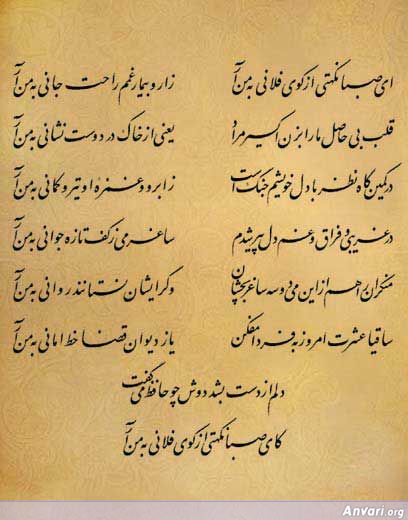 ای صبا نکهتی از کوی فلانی به من آر زار و بیمار غمم راحت جانی به من آر
قلب بی حاصل ما را بزن اکسیر مراد یعنی از خاک در دوست نشانی به من آر
در کمین گاه نظر با دل خویشم جنگ است ز ابرو و غمزه او تیر و کمانی به من آر
در غریبی و فراق و غم دل پیر شدم ساغر می ز کف تازه جوانی به من آر
منکران را هم از این می دو سه ساغر بچشان وگر ایشان نستانند روانی به من آر
ساقیا عشرت امروز به فردا مفکن یا ز دیوان قضا خط امانی به من آر
دلم از دست بشد دوش چو حافظ می گفت
کای صبا نکهتی از کوی فلانی به من آر
Anvari.org